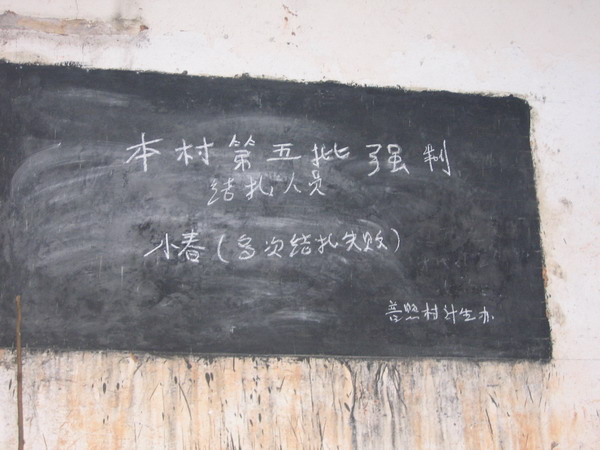 本村第五批强制
结扎人员
小春(多次结扎失败)
普照村计生办